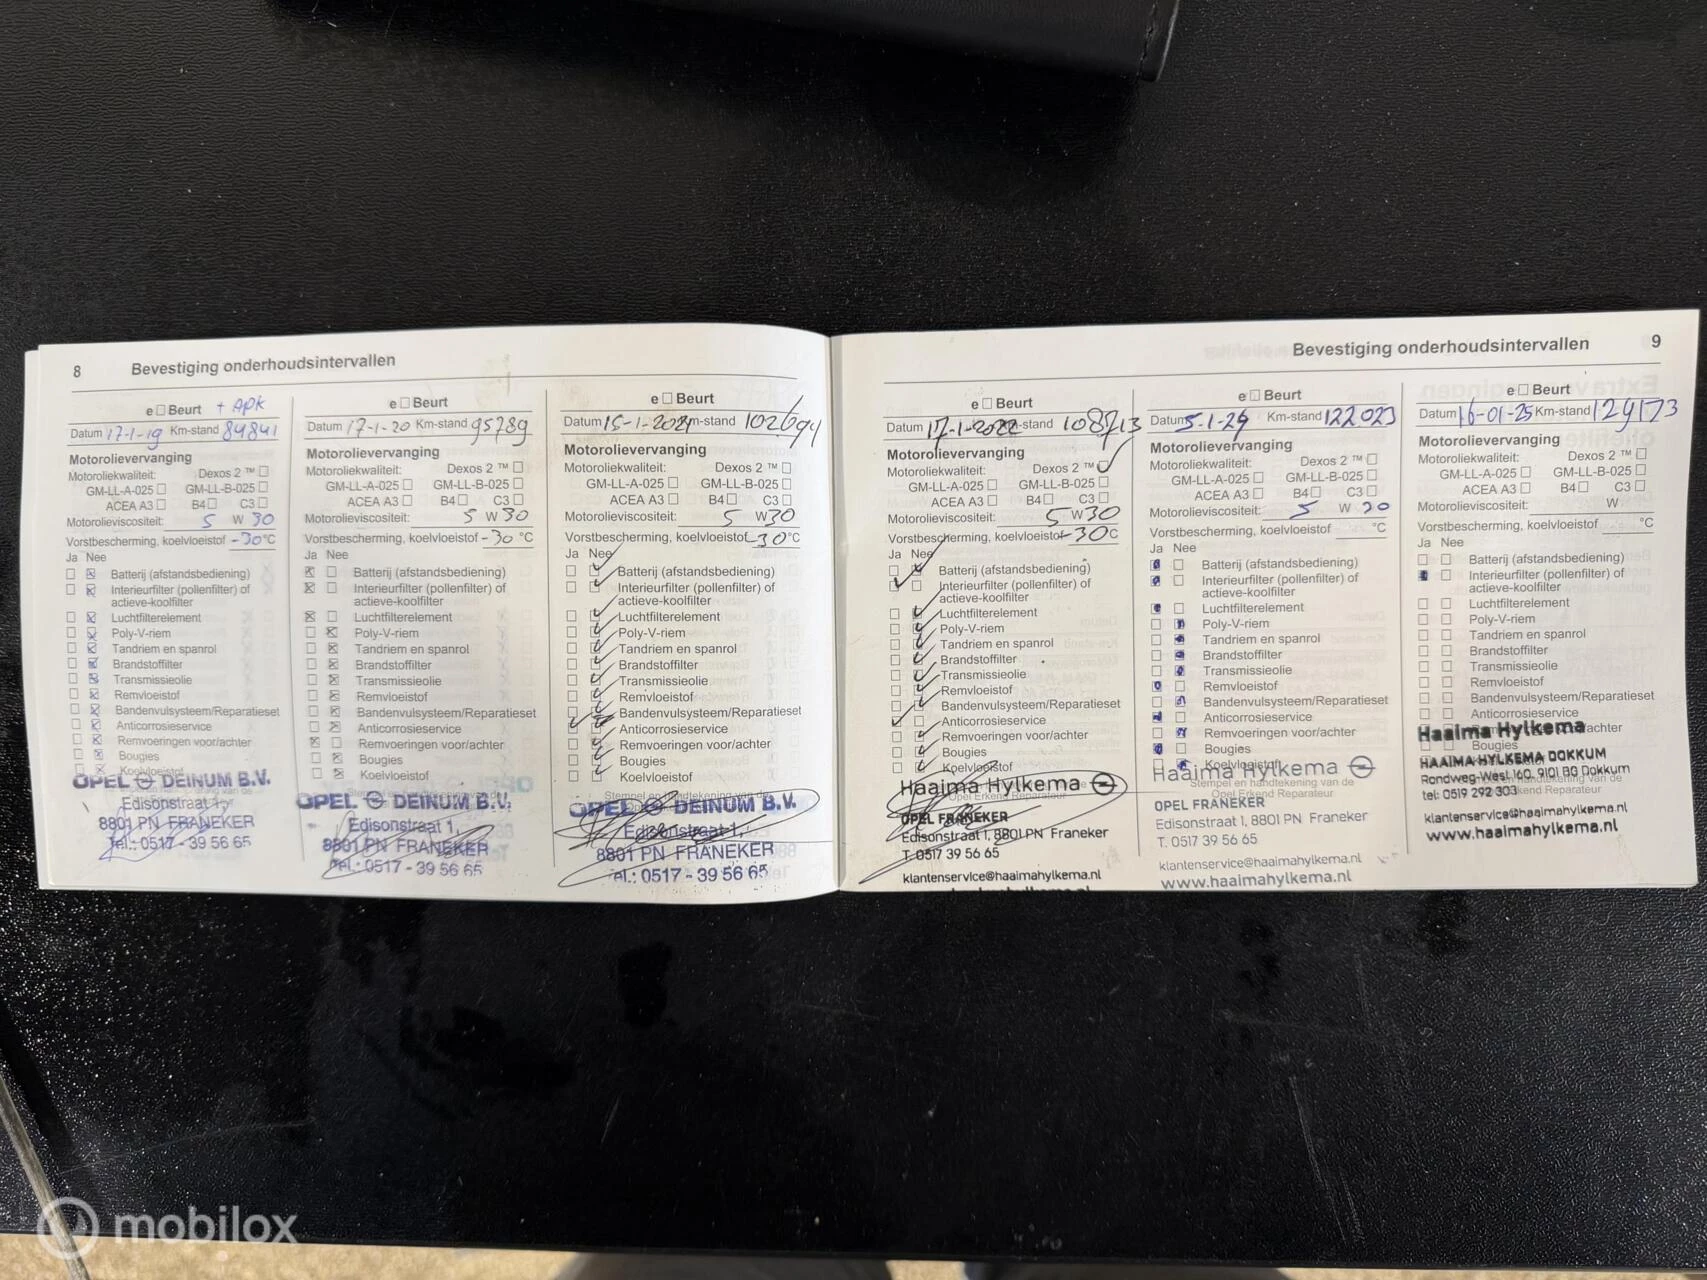 8 Bevestiging onderhoudsintervallen
e □ Beurt + APK
Datum 17-1-19 Km-stand 84841
Motorolievervanging
Motoroliekwaliteit: Dexos 2 ™ □
GM-LL-A-025 □ GM-LL-B-025 □
ACEA A3 □ B4 □ C3 □
Motorolieviscositeit: 5 W 30
Vorstbescherming, koelvloeistof -30 °C
Ja Nee
Batterij (afstandsbediening)
Interieurfilter (pollenfilter) of
actieve-koolfilter
Luchtfilterelement
Poly-V-riem
Tandriem en spanrol
Brandstoffilter
Transmissieolie
Remvloeistof
Bandenvulsysteem/Reparatieset
Anticorrosieservice
Remvoeringen voor/achter
Bougies
Koelvloeistof
OPEL DEINUM B.V.
Edisonstraat 1,
8801 PN FRANEKER
Tel.: 0517 - 39 56 65
e □ Beurt
Datum 17-1-20 Km-stand 95789
Motorolievervanging
Motoroliekwaliteit: Dexos 2 ™ □
GM-LL-A-025 □ GM-LL-B-025 □
ACEA A3 □ B4 □ C3 □
Motorolieviscositeit: 5 W 30
Vorstbescherming, koelvloeistof -30 °C
Ja Nee
Batterij (afstandsbediening)
Interieurfilter (pollenfilter) of
actieve-koolfilter
Luchtfilterelement
Poly-V-riem
Tandriem en spanrol
Brandstoffilter
Transmissieolie
Remvloeistof
Bandenvulsysteem/Reparatieset
Anticorrosieservice
Remvoeringen voor/achter
Bougies
Koelvloeistof
OPEL DEINUM B.V.
Edisonstraat 1,
8801 PN FRANEKER
Tel.: 0517 - 39 56 65
e □ Beurt
Datum 15-1-2021 Km-stand 102694
Motorolievervanging
Motoroliekwaliteit: Dexos 2 ™ □
GM-LL-A-025 □ GM-LL-B-025 □
ACEA A3 □ B4 □ C3 □
Motorolieviscositeit: 5 W 30
Vorstbescherming, koelvloeistof -30 °C
Ja Nee
Batterij (afstandsbediening)
Interieurfilter (pollenfilter) of
actieve-koolfilter
Luchtfilterelement
Poly-V-riem
Tandriem en spanrol
Brandstoffilter
Transmissieolie
Remvloeistof
Bandenvulsysteem/Reparatieset
Anticorrosieservice
Remvoeringen voor/achter
Bougies
Koelvloeistof
Stempel en handtekening van de
OPEL DEINUM B.V.
Edisonstraat 1,
8801 PN FRANEKER
Tel.: 0517 - 39 56 65
Bevestiging onderhoudsintervallen 9
e □ Beurt
Datum 17-1-2022 Km-stand 108713
Motorolievervanging
Motoroliekwaliteit: Dexos 2 ™ □
GM-LL-A-025 □ GM-LL-B-025 □
ACEA A3 □ B4 □ C3 □
Motorolieviscositeit: 5 W 30
Vorstbescherming, koelvloeistof -30 °C
Ja Nee
Batterij (afstandsbediening)
Interieurfilter (pollenfilter) of
actieve-koolfilter
Luchtfilterelement
Poly-V-riem
Tandriem en spanrol
Brandstoffilter
Transmissieolie
Remvloeistof
Bandenvulsysteem/Reparatieset
Anticorrosieservice
Remvoeringen voor/achter
Bougies
Koelvloeistof
Haaima Hylkema
Opel Erkend Reparateur
OPEL FRANEKER
Edisonstraat 1, 8801 PN Franeker
T. 0517 39 56 65
klantenservice@haaimahylkema.nl
e □ Beurt
Datum 5-1-24 Km-stand 122023
Motorolievervanging
Motoroliekwaliteit: Dexos 2 ™ □
GM-LL-A-025 □ GM-LL-B-025 □
ACEA A3 □ B4 □ C3 □
Motorolieviscositeit: 5 W 30
Vorstbescherming, koelvloeistof °C
Ja Nee
Batterij (afstandsbediening)
Interieurfilter (pollenfilter) of
actieve-koolfilter
Luchtfilterelement
Poly-V-riem
Tandriem en spanrol
Brandstoffilter
Transmissieolie
Remvloeistof
Bandenvulsysteem/Reparatieset
Anticorrosieservice
Remvoeringen voor/achter
Bougies
Koelvloeistof
Haaima Hylkema
Stempel en handtekening van de
Opel Erkend Reparateur
OPEL FRANEKER
Edisonstraat 1, 8801 PN Franeker
T. 0517 39 56 65
klantenservice@haaimahylkema.nl
www.haaimahylkema.nl
e □ Beurt
Datum 16-01-25 Km-stand 129173
Motorolievervanging
Motoroliekwaliteit: Dexos 2 ™ □
GM-LL-A-025 □ GM-LL-B-025 □
ACEA A3 □ B4 □ C3 □
Motorolieviscositeit: W
Vorstbescherming, koelvloeistof °C
Ja Nee
Batterij (afstandsbediening)
Interieurfilter (pollenfilter) of
actieve-koolfilter
Luchtfilterelement
Poly-V-riem
Tandriem en spanrol
Brandstoffilter
Transmissieolie
Remvloeistof
Bandenvulsysteem/Reparatieset
Anticorrosieservice
Haaima Hylkema
Bougies
HAAIMA HYLKEMA DOKKUM
Rondweg-West 160, 9101 BG Dokkum
tel: 0519 292 303
klantenservice@haaimahylkema.nl
www.haaimahylkema.nl
mobilox